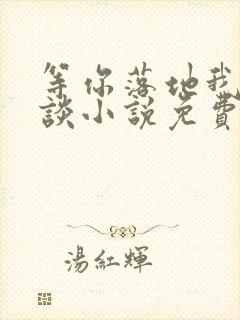 等你落地我
談小說免費
湯紅輝